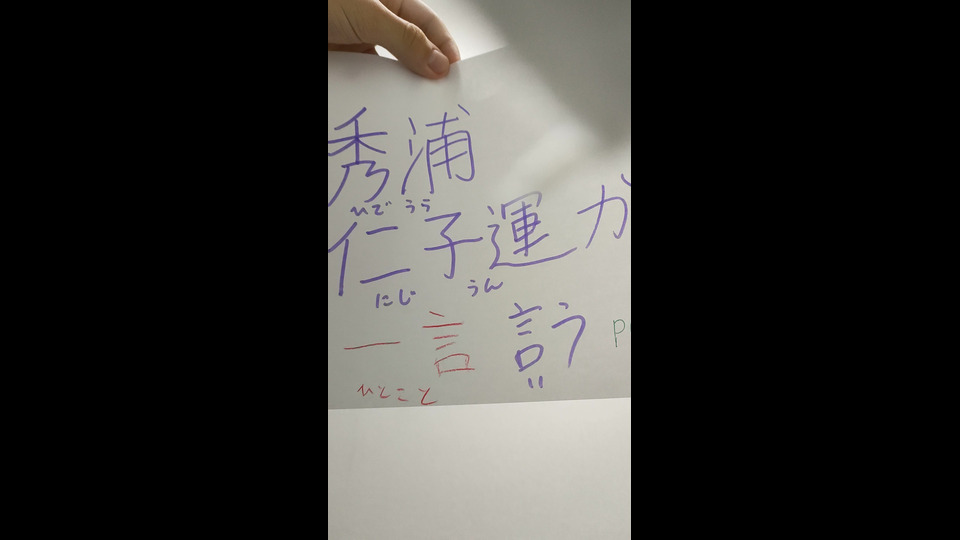 秀浦
ひで うら
仁子運か
にじ うん
一言 言う
ひとこと い